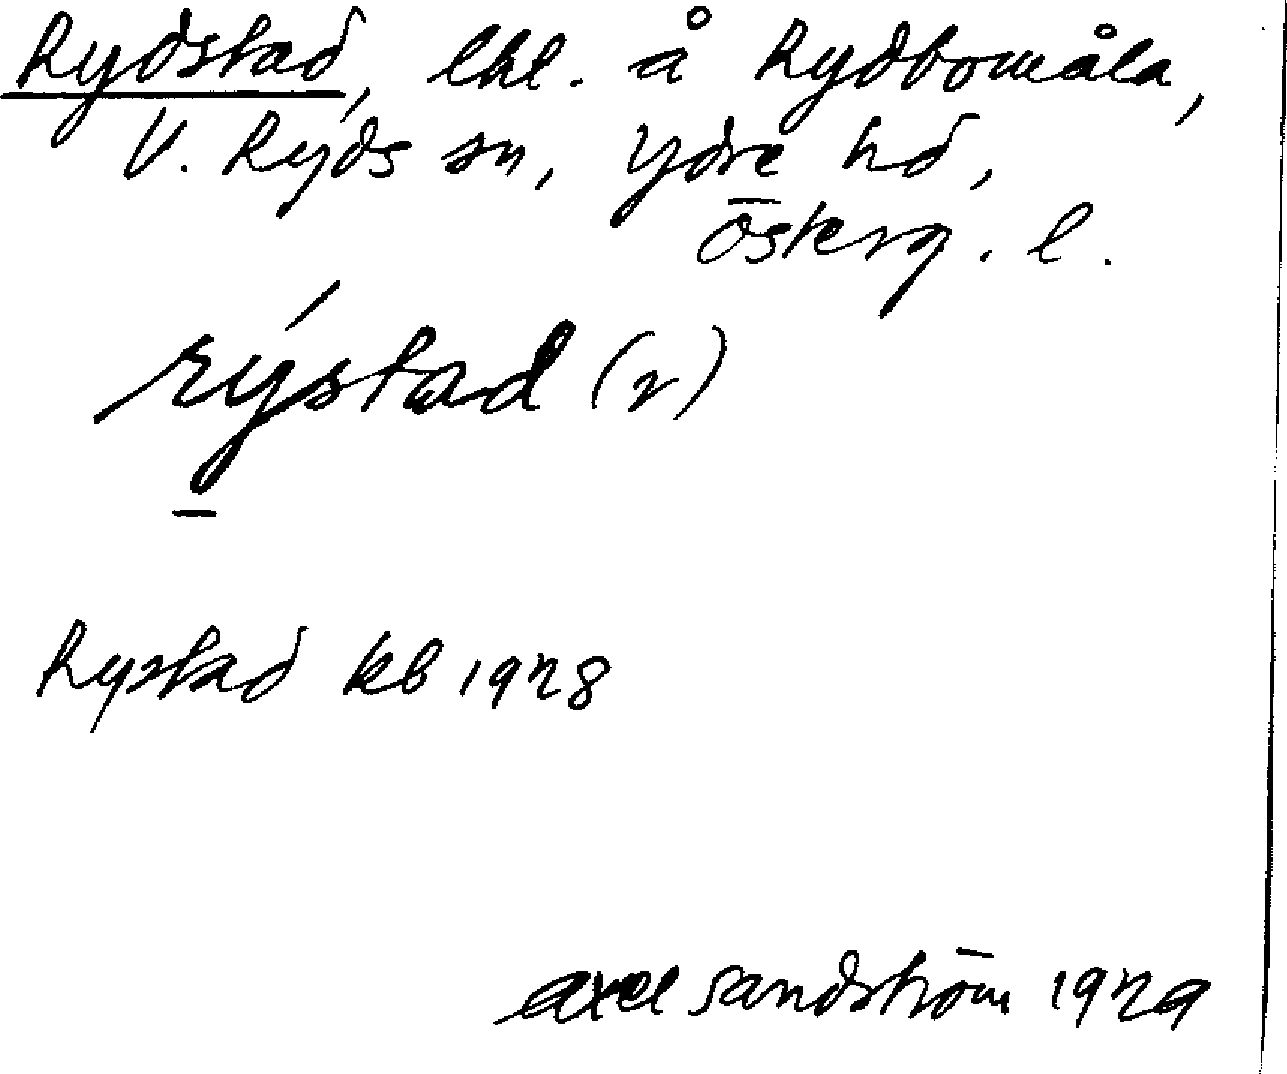 Rydstad, lht. å Rydbomåla,
V. Ryds sn, Ydre hd,
Österg. l.
rýstad (r)
Rystad kb 1928
Axel Sandström 1929